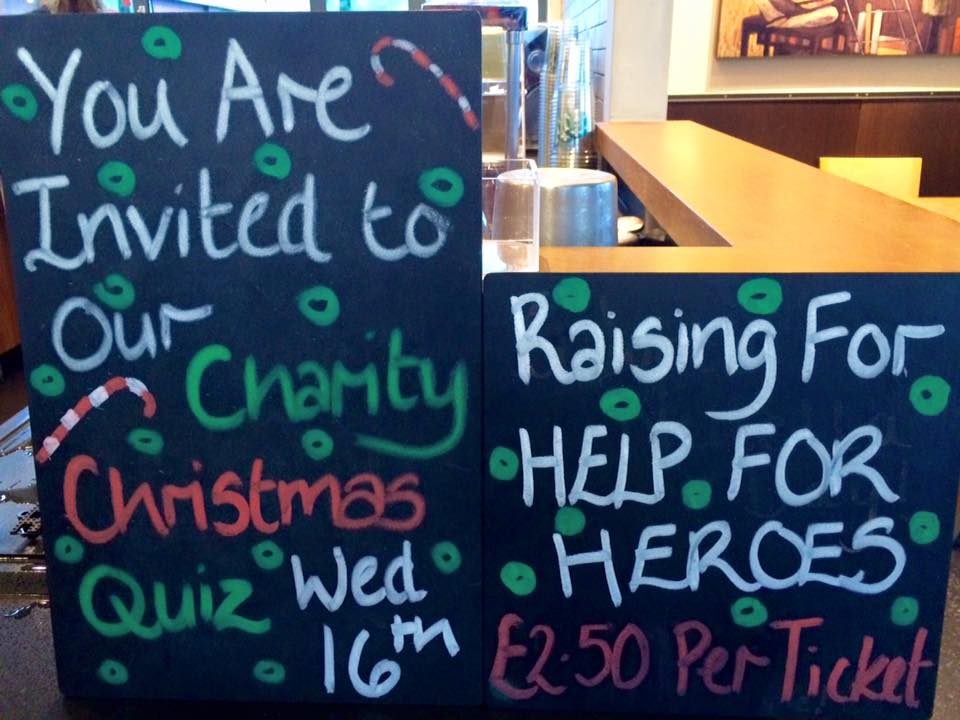 You Are
Invited to
Our
Charity
Christmas
Quiz Wed
16th
Raising For
HELP FOR
HEROES
£2.50 Per Ticket